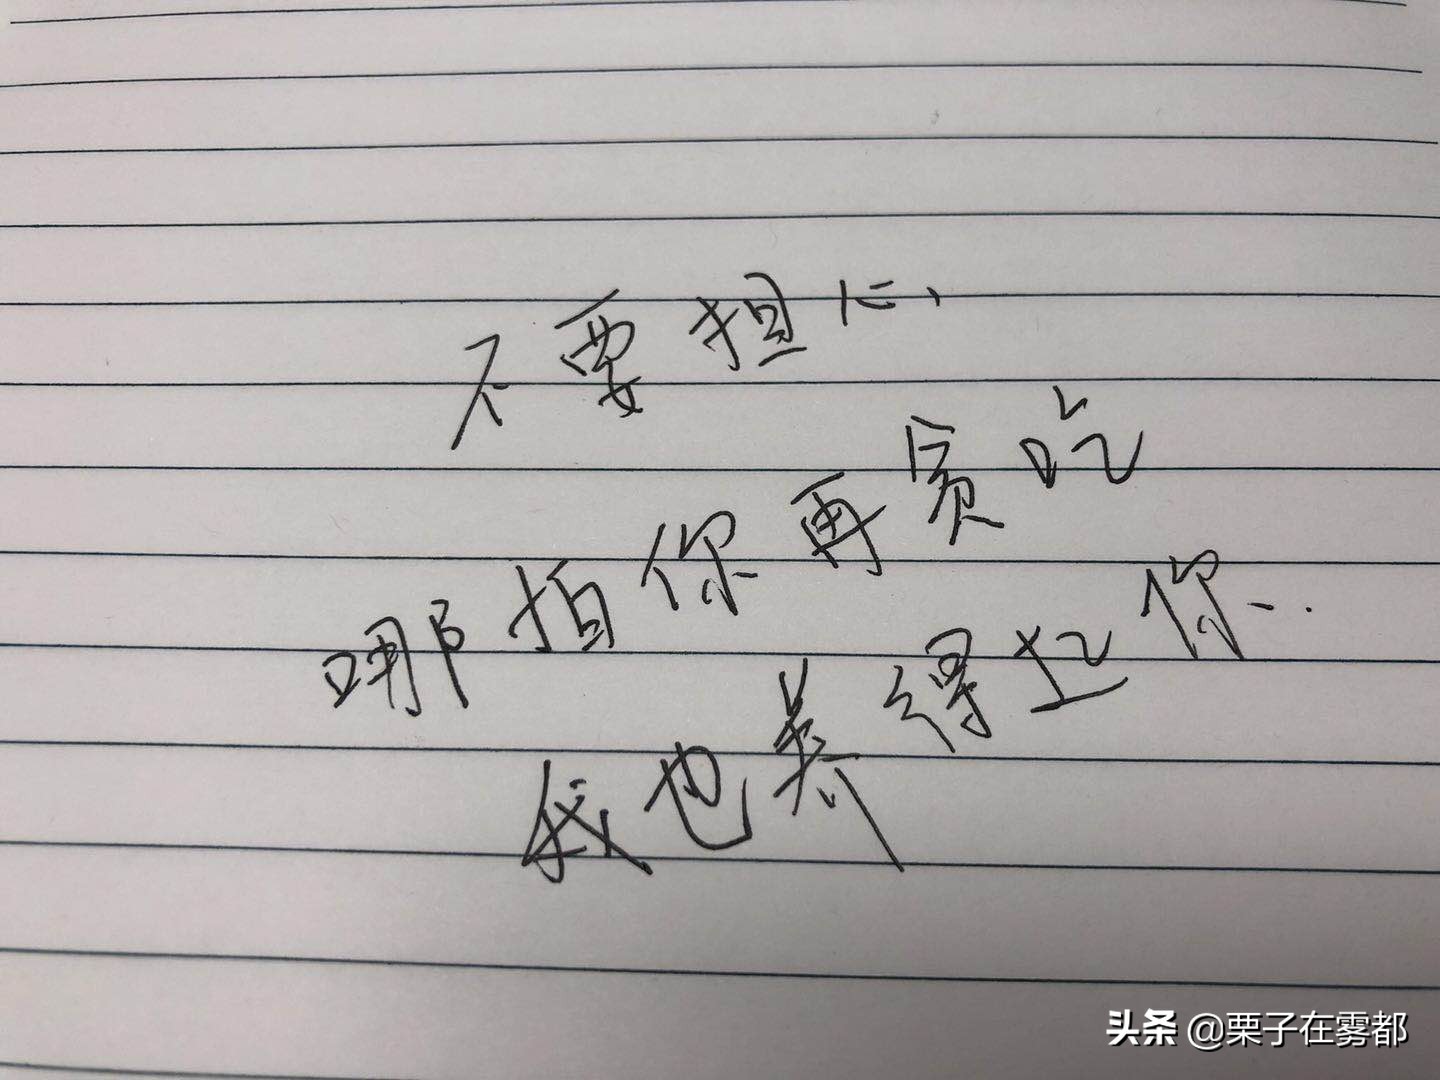 不要担心
哪怕你再贪吃
我也养得起你...
头条 @栗子在雾都